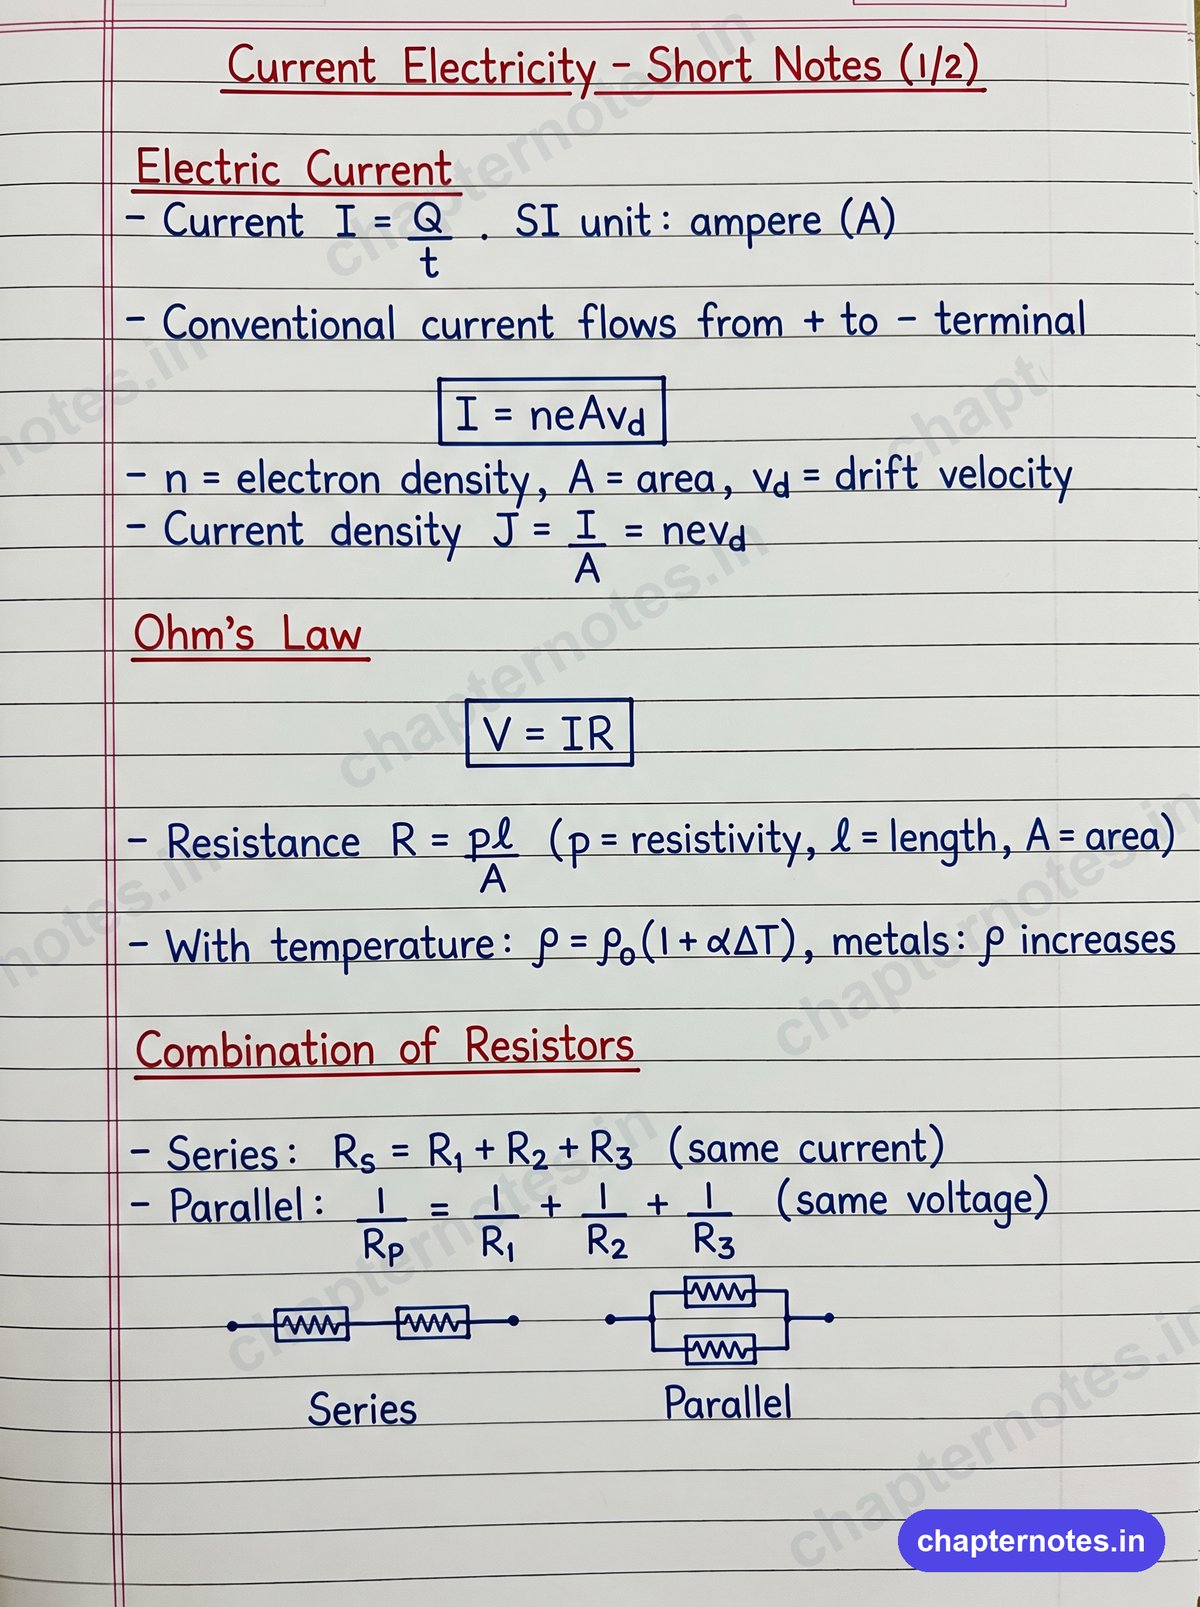 Current Electricity – Short Notes (1/2)
Electric Current
– Current I = Q/t . SI unit: ampere (A)
– Conventional current flows from + to – terminal
I = neAvd
– n = electron density, A = area, vd = drift velocity
– Current density J = I/A = nevd
Ohm's Law
V = IR
– Resistance R = pℓ/A (p = resistivity, ℓ = length, A = area)
– With temperature: ρ = ρ₀(1 + αΔT), metals: ρ increases
Combination of Resistors
– Series: Rs = R₁ + R₂ + R₃ (same current)
– Parallel: 1/Rp = 1/R₁ + 1/R₂ + 1/R₃ (same voltage)
Series Parallel
chapternotes.in